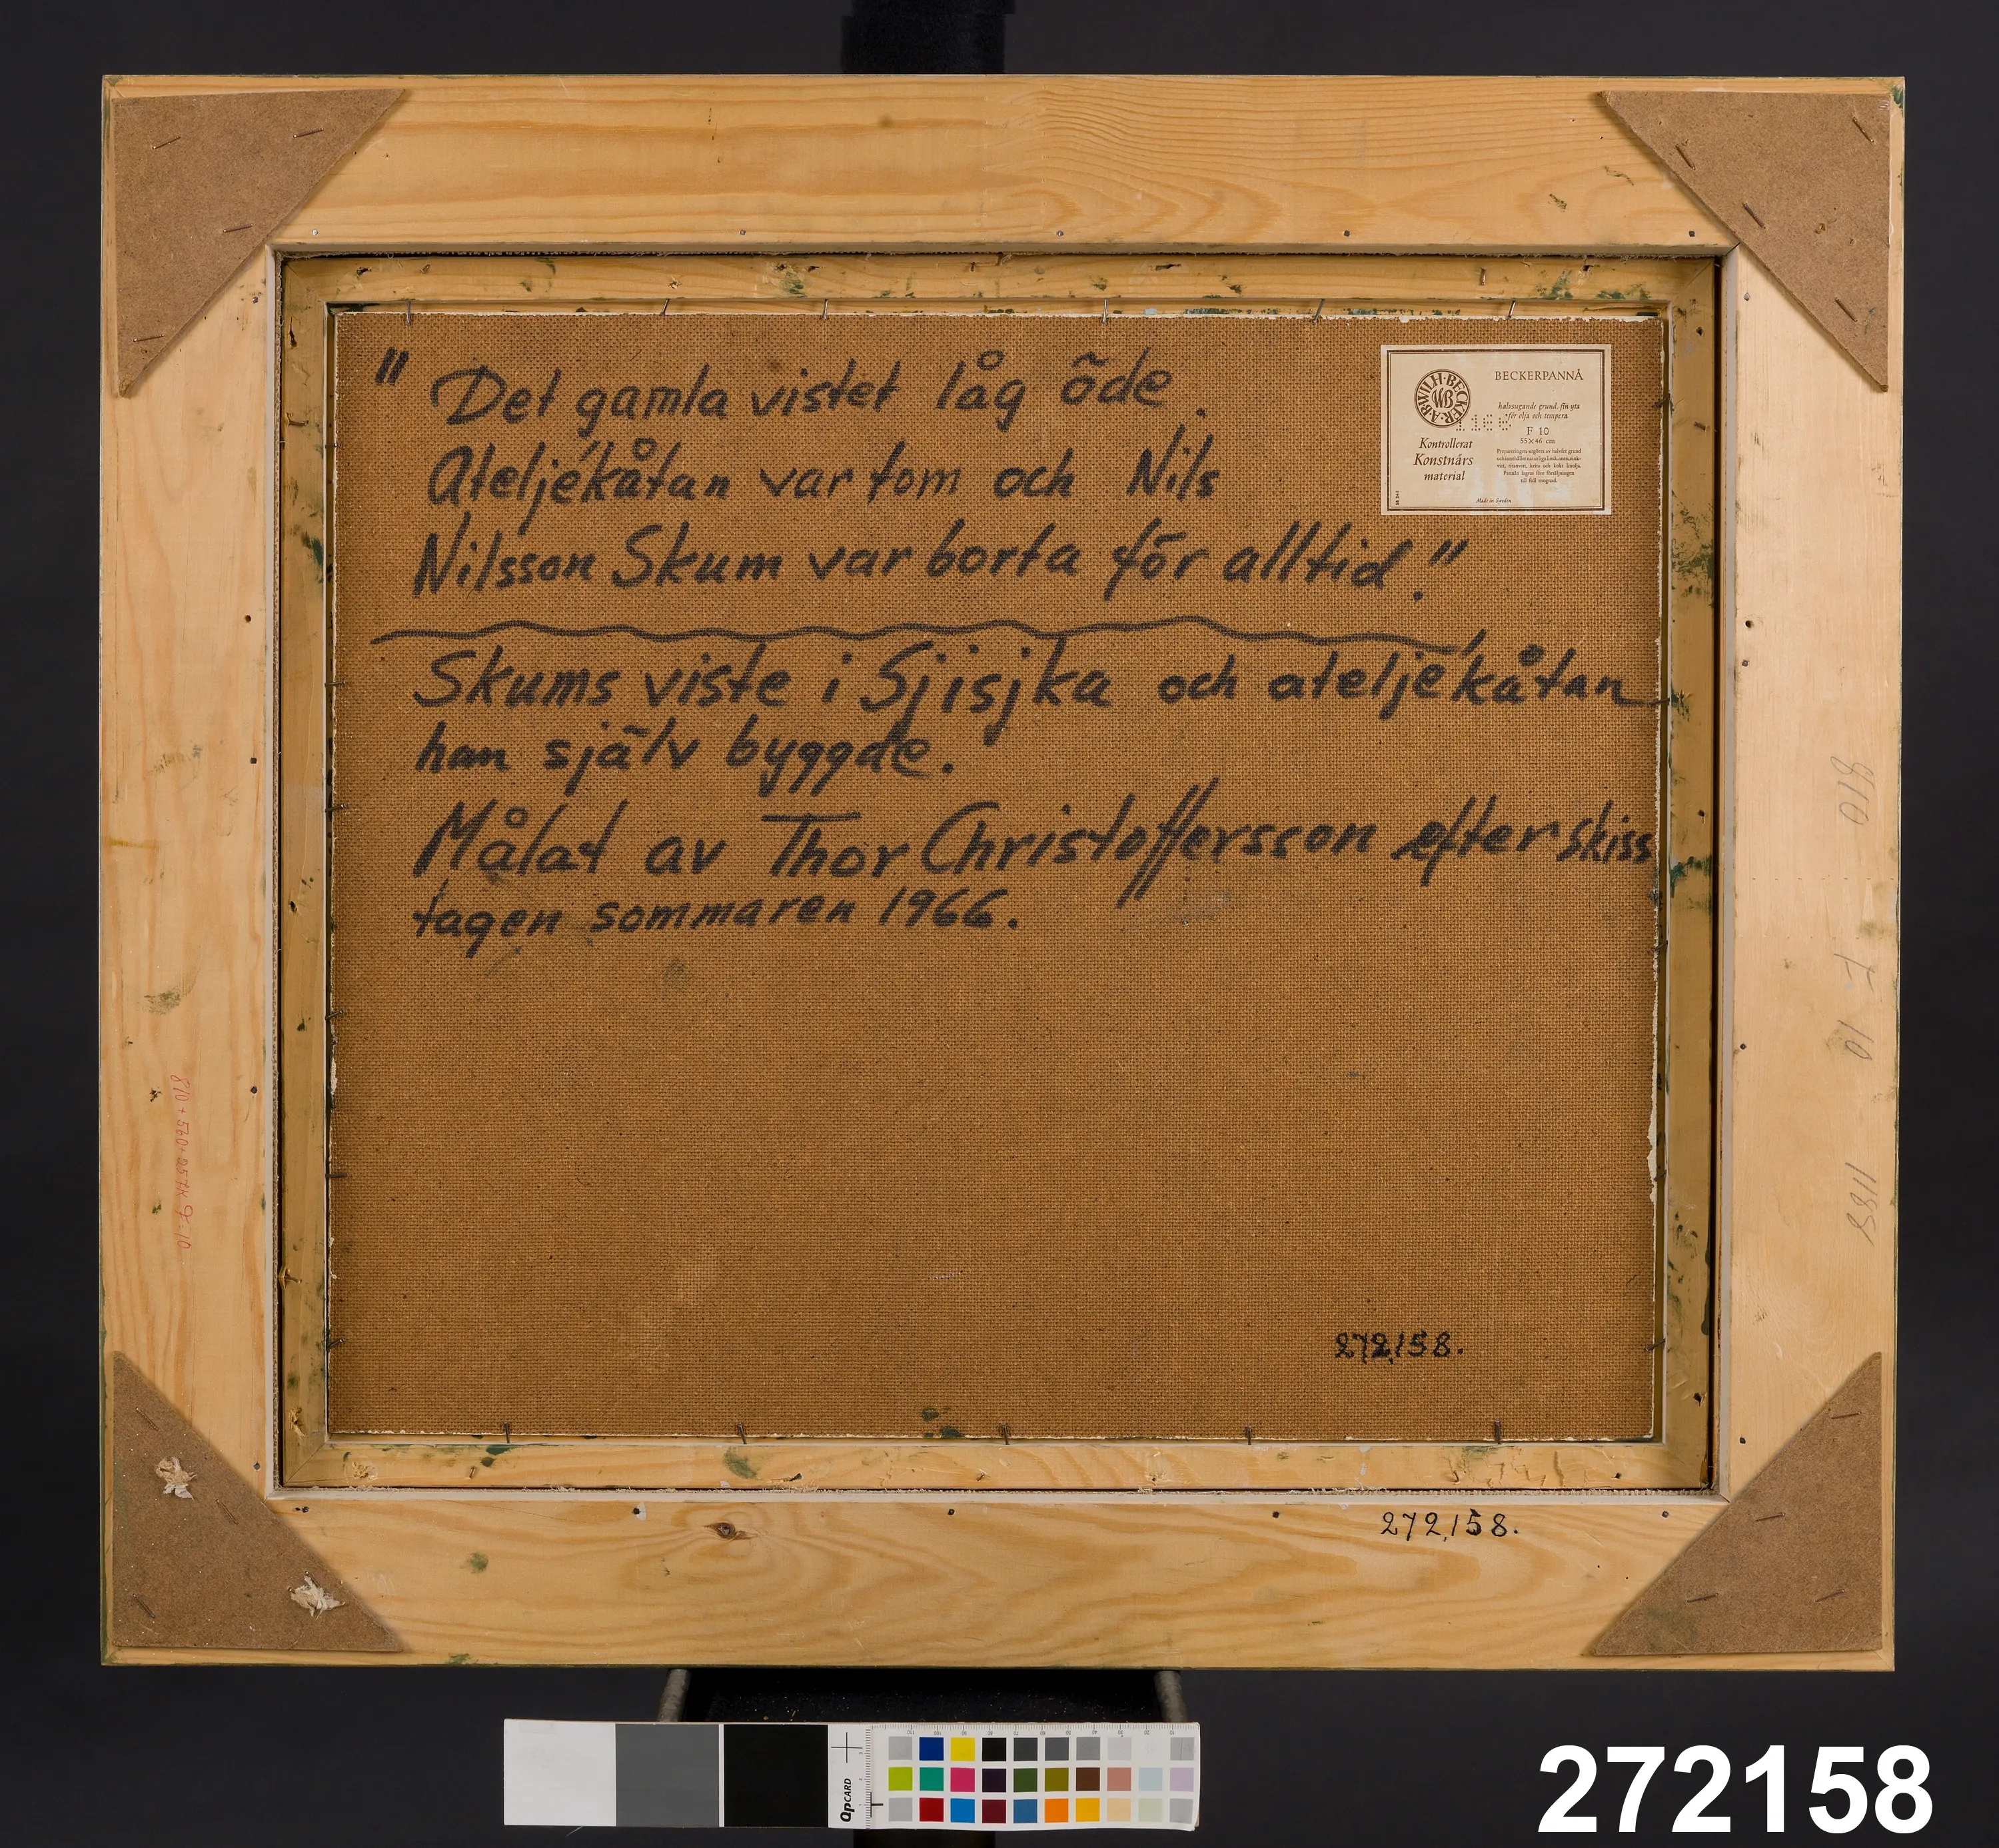 " Det gamla vistet låg öde.
Ateljékåtan var tom och Nils
Nilsson Skum var borta för alltid."
Skums viste i Sjisjka och ateljékåtan
han själv byggde.
Målat av Thor Christoffersson efter skiss
tagen sommaren 1966.
A·B·WILH·BECKER
WB
BECKERPANNÅ
halvsugande grund, fin yta
för olja och tempera
F 10
55×46 cm
Kontrollerat
Konstnärs
material
Made in Sweden
810
F 10
1188
272,158.
272,158.
QPCARD
272158